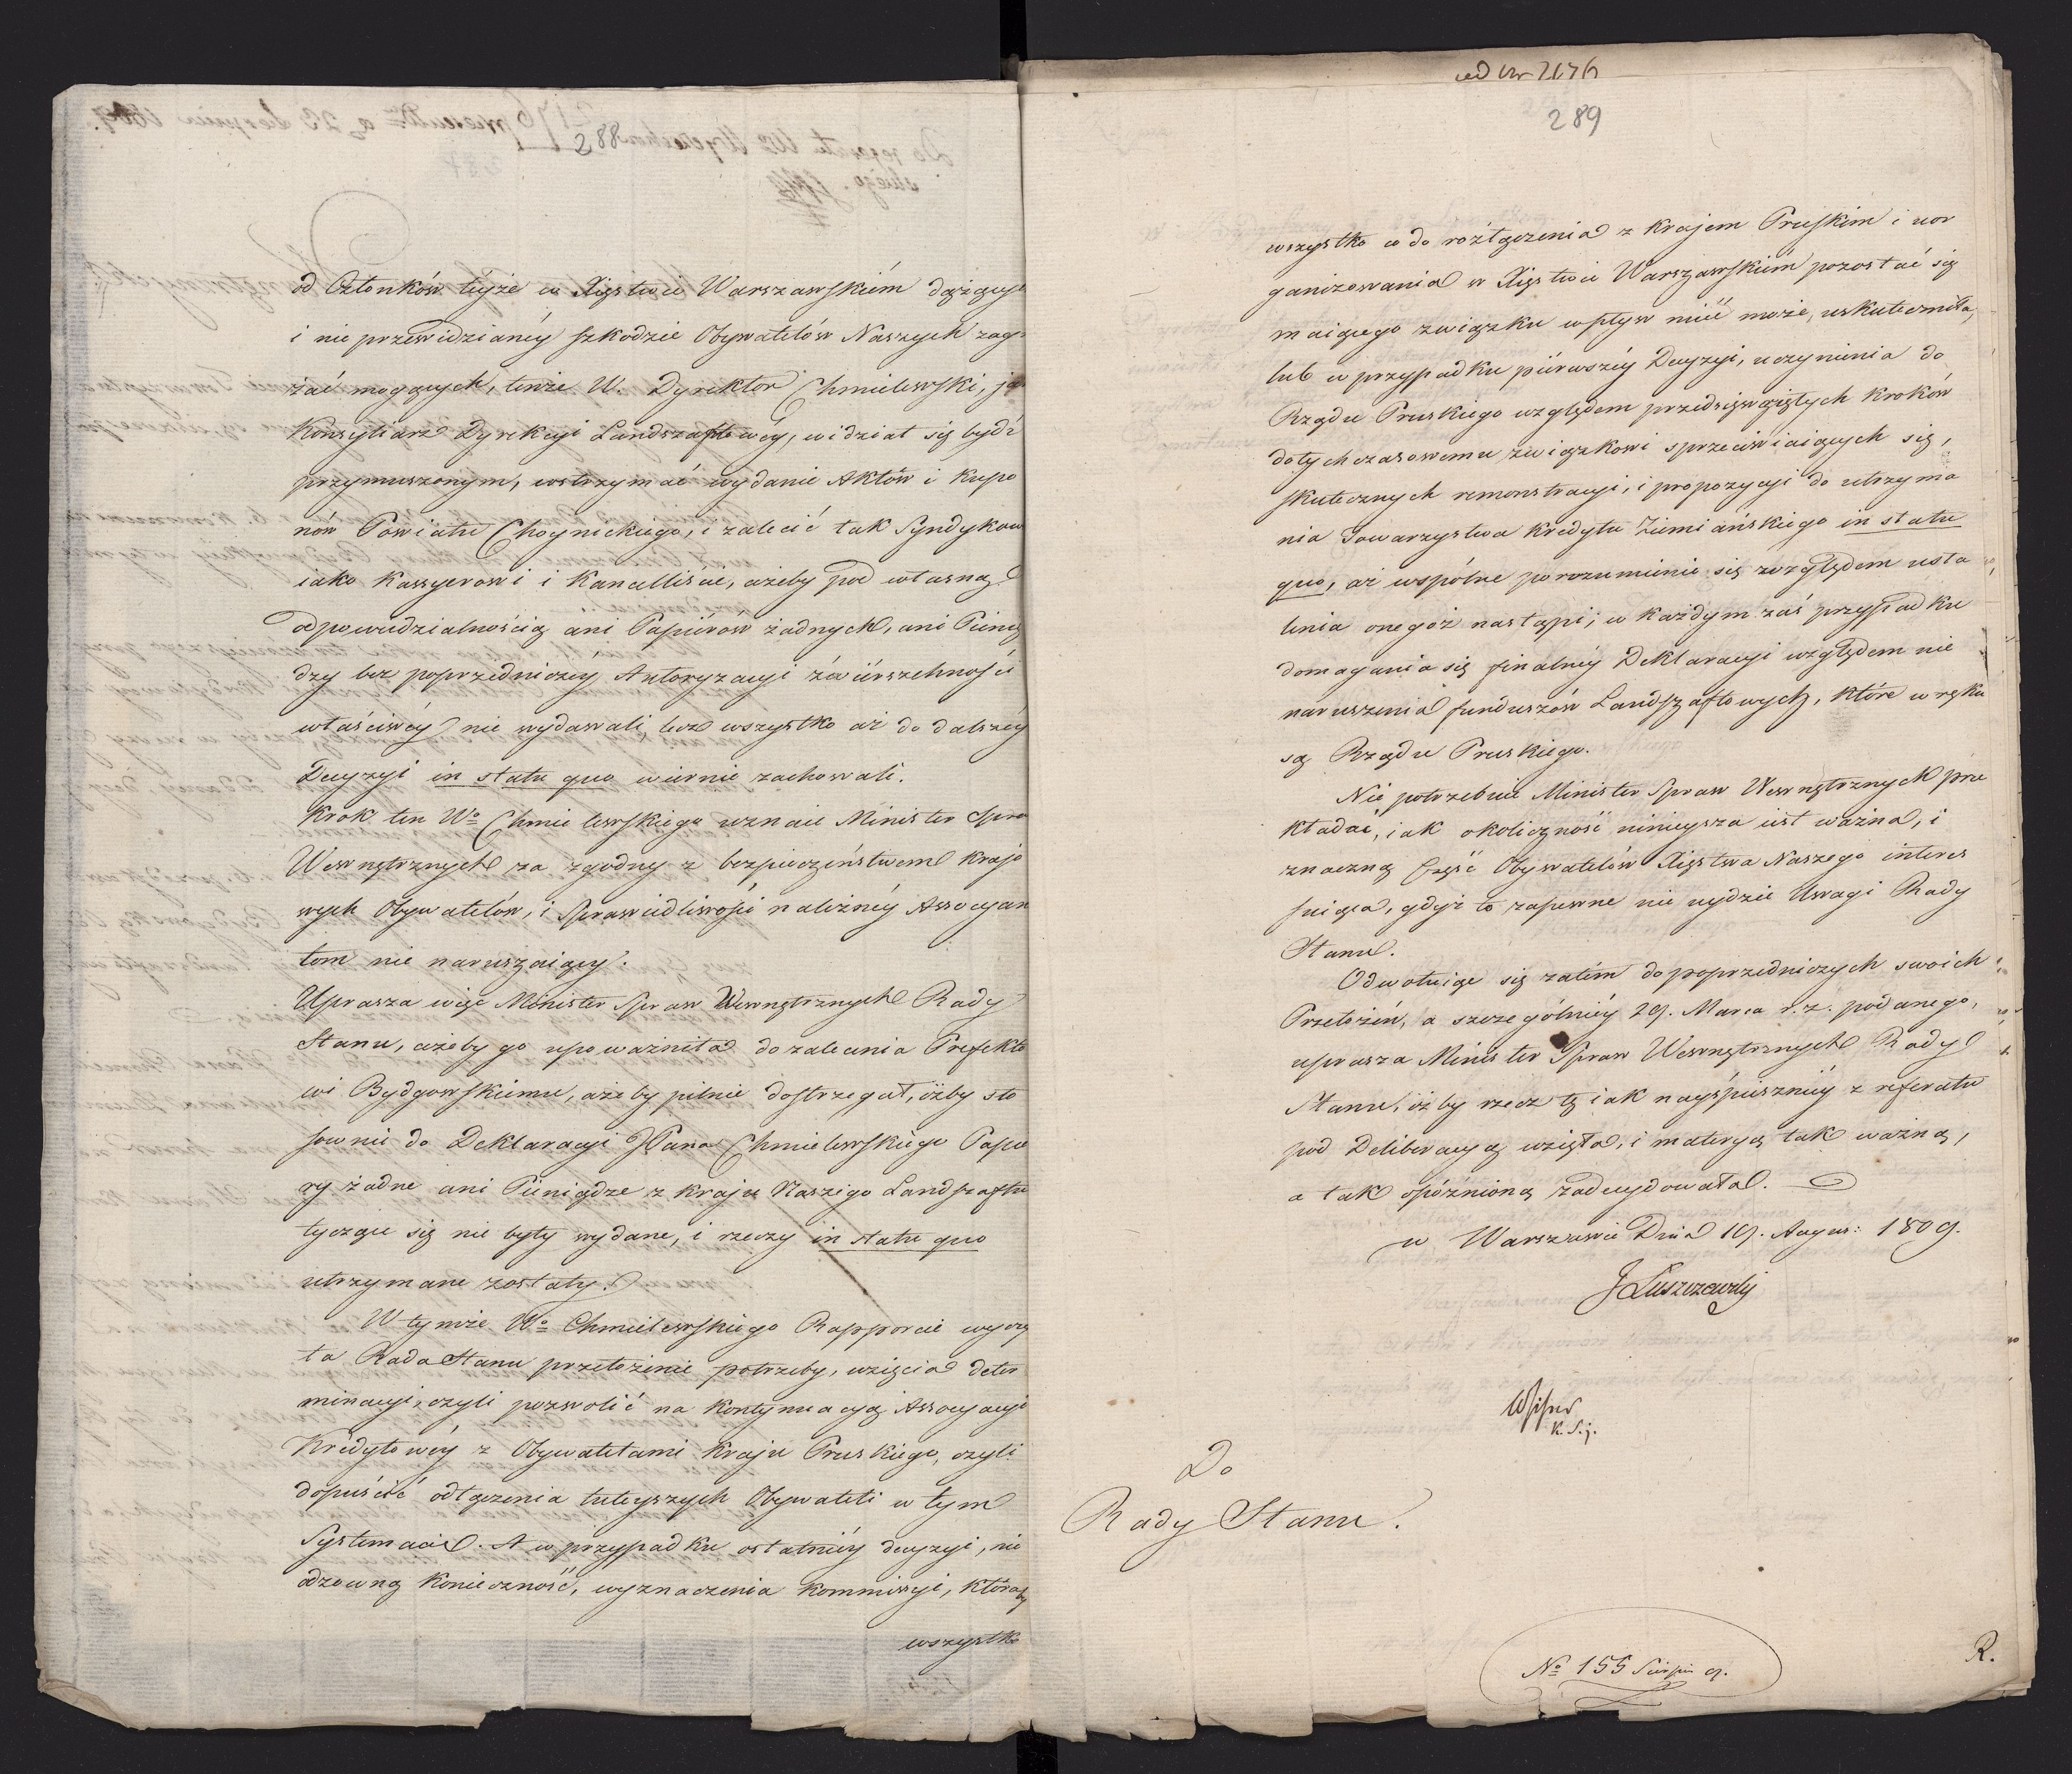 288
od Członków teyże w Xięstwie Warszawskiém dążący
i nie przewidzianéy szkodzie Obywatelów Naszych zagr
żać mogących, tenże W. Dyrektor Chmielewski, ja
Konsyliarz Dyrekcyi Landszaftowéy, widział się bydź
przymuszonym, wstrzymać wydanie Aktów i Kupo
nów Powiatu Choynickiego, i zalecić tak Syndykow
iako Kassyerowi i Kancelliście, ażeby pod własną
odpowiedzialnością ani Papierów żadnych, ani Pienię
dzy bez poprzedniczéy Autoryzacyi zwierzchności
właściwéy nie wydawali, lecz wszystko aż do dalszéy
Decyzyi in statu quo wiernie zachowali.
Krok ten Wo Chmielewskiego uznaie Minister Spra
Wewnętrznych za zgodny z bezpieczeństwem krajo
wych Obywatelów, i Sprawiedliwości należnéy Assocyan
tom nie naruszaiący.
Uprasza więc Minister Spraw Wewnętrznych Rady
Stanu, ażeby go upoważniła do zalecenia Prefekto
wi Bydgowskiemu, ażeby pilnie dostrzegał, iżby sto
sownie do Deklaracyi JPana Chmielewskiego Papie
ry żadne ani Pieniądze z kraju Naszego Landszaftu
tyczące się nie były wydane, i rzeczy in statu quo
utrzymane zostały.
W tymże Wo Chmielewskiego Rapporcie wyczy
ta Rada Stanu przełożenie potrzeby, wzięcia deter
minacyi, czyli pozwolić na kontynuacyą Assocyacyi
Kredytowéy z Obywatelami kraju Pruskiego, czyli
dopuścić odłączenia tuteyszych Obywateli w tym
Systemacie. A w przypadku ostatniéy decyzyi, nie
odzowną konieczność, wyznaczenia kommissyi, któraby
wszystko
ad Nr 2176
289
wszystko co do rozłączenia z krajem Pruskim i uor
ganizowania w Xięstwie Warszawskiem pozostać się
maiącego związku wpływ mieć może, uskuteczniła,
lub w przypadku pierwszéy Decyzyi, uczynienia do
Rządu Pruskiego względem przedsięwziętych kroków
dotychczasowemu związkowi sprzeciwiaiących się,
skutecznych remonstracyi, i propozycyi do utrzyma
nia Towarzystwa kredytu Ziemiańskiego in statu
quo, aż wspólne porozumienie się względem usta
lenia onegoż nastąpi; w każdym zaś przypadku
domagania się finalnéy Deklaracyi względem nie
naruszenia funduszów Landszaftowych, które w ręku
są Rządu Pruskiego.
Nie potrzebuie Minister Spraw Wewnętrznych prze
kładać, iak okoliczność ninieysza iest ważna, i
znaczną część Obywatelów Xięstwa Naszego interes
suiąca, gdyż to zapewne nie uydzie Uwagi Rady
Stanu.
Odwołuiąc się zatém do poprzedniczych swoich
Przełożeń, a szczególniéy 29. Marca r. z. podanego,
uprasza Minister Spraw Wewnętrznych Rady
Stanu, iżby rzecz tę iak nayśpieszniéy z referatu
pod Deliberacyą wzięła, i materyą tak ważną,
a tak opóźnioną zadecydowała.
w Warszawie Dnia 19. Augus: 1809.
J Łuszczewski
K. S. j.
Do
Rady Stanu.
No 155 Sierpn 9.
R.